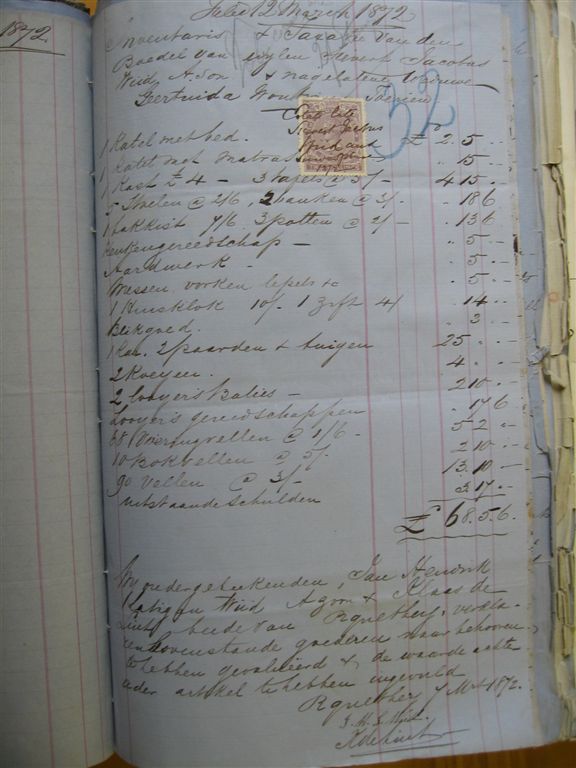 1872
Filed 12 March 1872
Inventaris & Taxatie van den
Boedel van wylen Sievert Jacobus
Wiid A. Zon & nagelatene Weduwe
Gertruida
32
1 Katel met bed. £ 2 5
1 Katel met Matras 15
1 Kast £4 - 3 tafels @ 5/- 4 15
5 Stoelen @ 2/6, 2 banken @ 3/- 18 6
1 bakkist 7/6 3 potten @ 2/- 13 6
Keukengereedschap - 5
Aardewerk - 5
Messen vorken lepels &c 5
1 Huisklok 10/- 1 4/ 14
3
1 Kar. 2 paarden & tuigen 25
2 Koeyen 4
2 Looyers Balies - 2 10
Looyers gereedschappen 17 6
vellen @ 1/6 - 5 2
10 Bokvellen @ 5/- 2 10
90 vellen @ 3/- 13 10
uitstaande schulden 3 17
£ 68. 5. 6.
Wy ondergeteekenden, Jan Hendrik
Wiid A zoon & Klaas de
Lint, beide van Riquetberg, verkla-
ren bovenstaande goederen naar behooren
te hebben gevalueerd & de waarde achter
ieder artikel te hebben ingevuld
Riquetberg 7 Mrt 1872.
K de Lint